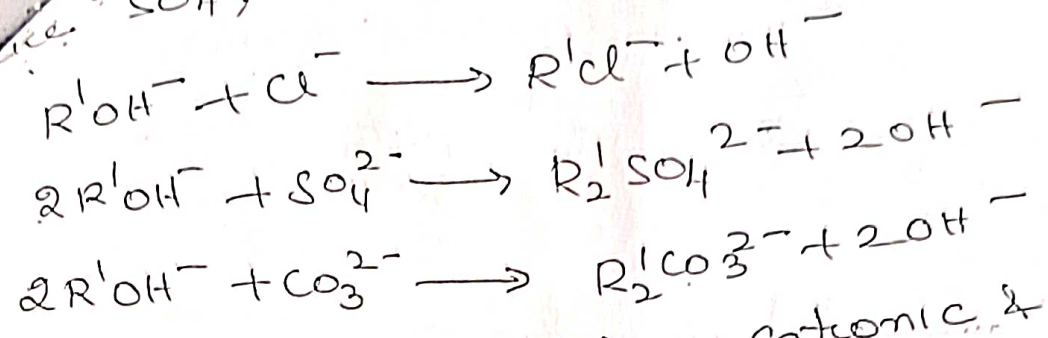 R'OH⁻ + Cl⁻ ⟶ R'Cl⁻ + OH⁻
2R'OH⁻ + SO₄²⁻ ⟶ R₂'SO₄²⁻ + 2OH⁻
2R'OH⁻ + CO₃²⁻ ⟶ R₂'CO₃²⁻ + 2OH⁻
&